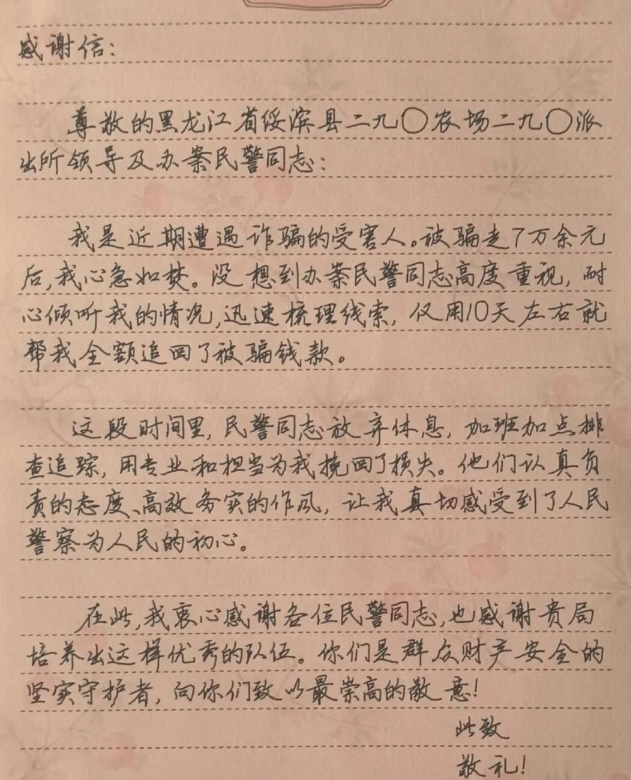 感谢信：
尊敬的黑龙江省绥滨县二九〇农场二九〇派
出所领导及办案民警同志：
我是近期遭遇诈骗的受害人。被骗走7万余元
后，我心急如焚。没想到办案民警同志高度重视，耐
心倾听我的情况，迅速梳理线索，仅用10天左右就
帮我全额追回了被骗钱款。
这段时间里，民警同志放弃休息，加班加点排
查追踪，用专业和担当为我挽回了损失。他们认真负
责的态度、高效务实的作风，让我真切感受到了人民
警察为人民的初心。
在此，我衷心感谢各位民警同志，也感谢贵局
培养出这样优秀的队伍。你们是群众财产安全的
坚实守护者，向你们致以最崇高的敬意！
此致
敬礼！